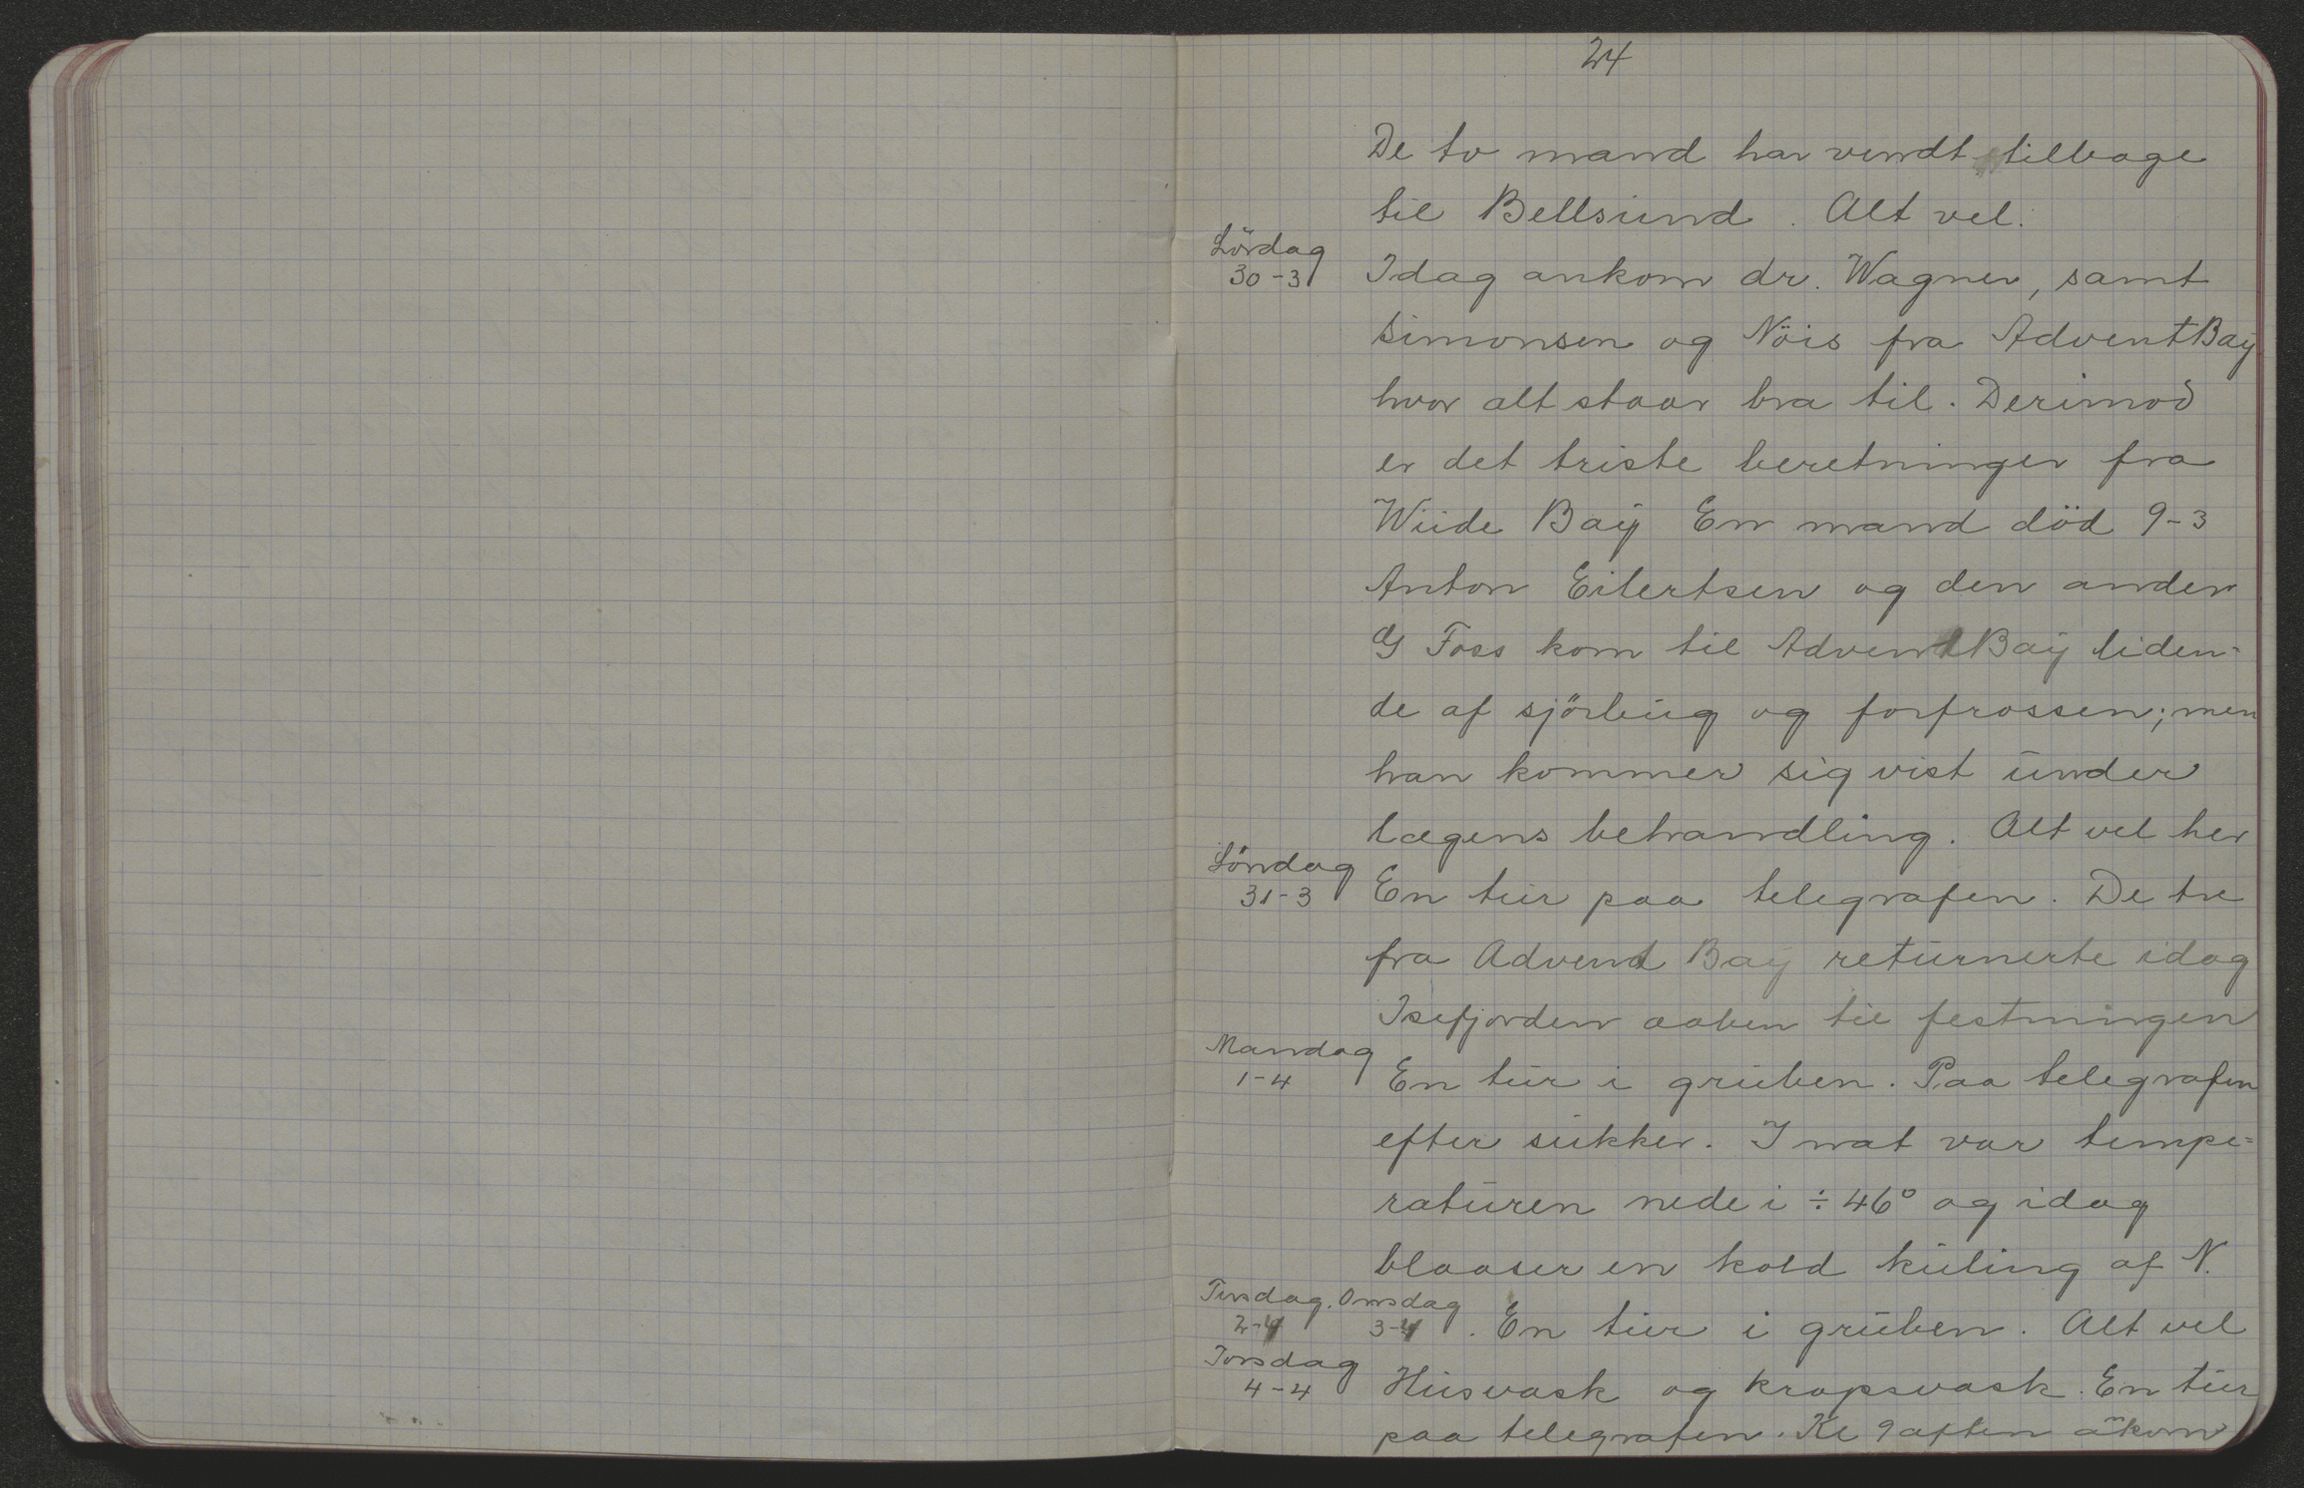 24
De to mand har vendt tilbage
til Bellsund. Alt vel.
Lördag
30-3
Idag ankom dr. Wagner, samt
Simonsen og Nöis fra Advent Bay
hvor alt staar bra til. Derimod
er det triste beretninger fra
Wiide Bay En mand död 9-3
Anton Eilertsen og den anden
G Foss kom til Advent Bay liden-
de af sjörbug og forfrossen; men
han kommer sig vist under
lægens behandling. Alt vel her
Söndag
31-3
En tur paa telegrafen. De tre
fra Advend Bay returnerte idag
Isefjorden aaben til festningen
Mandag
1-4
En tur i gruben. Paa telegrafen
efter sukker. I nat var tempe=
raturen nede i ÷ 46° og idag
blaaser en kold kuling af N.
Tirsdag. Onsdag
2-4 3-4 . En tur i gruben. Alt vel
Torsdag
4-4
Husvask og kropsvask. En tur
paa telegrafen. Kl 9 aften ākom